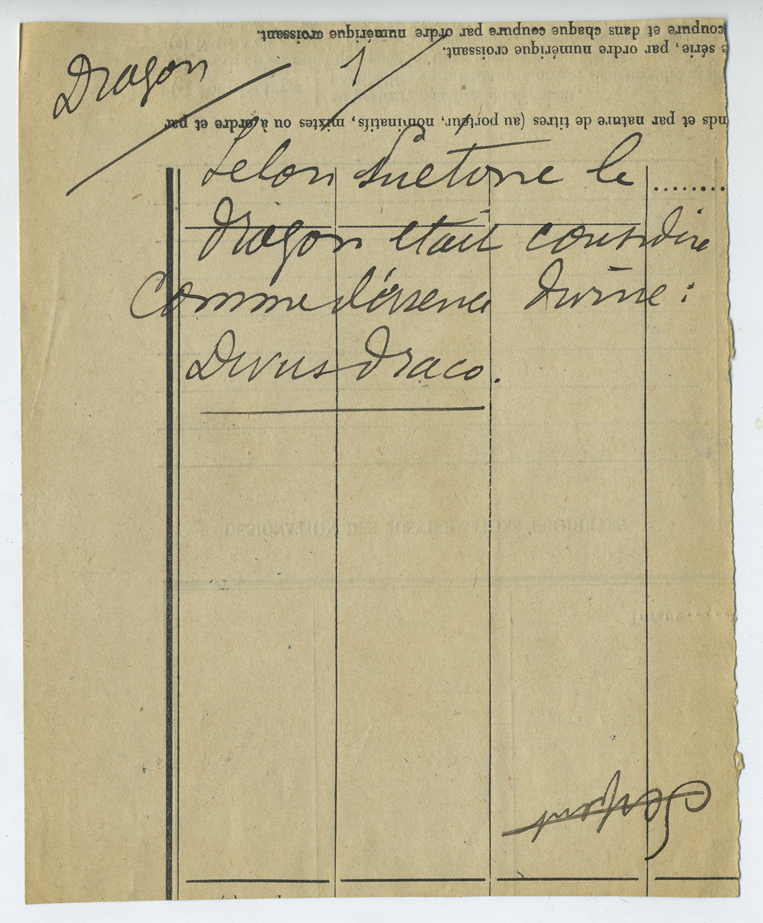 Dragon
1
coupure et dans chaque coupure par ordre numérique croissant.
e série, par ordre numérique croissant.
nds et par nature de titres (au porteur, nominatifs, mixtes ou à ordre et par
Selon Suetone le ........
dragon etait consideré
comme d'essence divine :
Divus draco.
Serpent